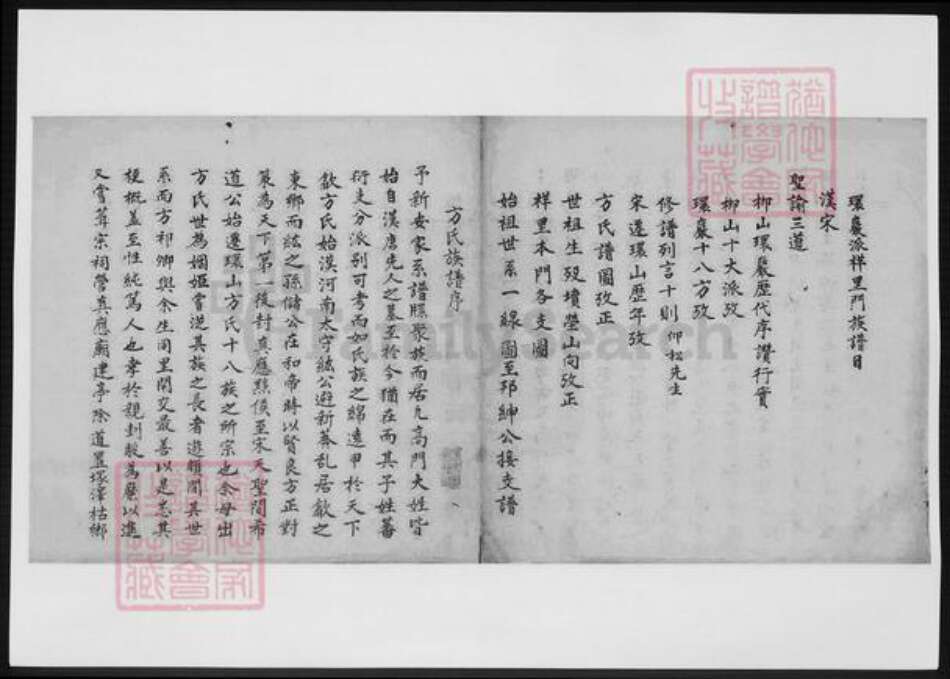 環巖派樣里門族譜目
漢宋
聖諭三道
柳山環巖歷代序讚行實
柳山十大派攷
環巖十八方攷
修譜列言十則 仰松先生
宋遷環山歷年攷
方氏譜圖攷正
世祖生殁墳塋山向攷正
樣里本門各支圖
始祖世系一線圖至邦紳公接支譜
方氏族譜序
予新安家系譜牒聚族而居凢高門大姓皆
始自漢唐先人之墓至於今猶在而其子姓蕃
衍支分派别可考而知氏族之綿遠甲於天下
歙方氏始漢河南太守紘公避新莽乱居歙之
東鄉而紘之孫儲公在和帝時以賢良方正對
策為天下第一後封真應黟侯至宋天聖間希
道公始遷環山方氏十八族之所宗也余母出
方氏世為婣婭嘗從其族之長者遊頗聞其世
系而方祁卿與余生同里閈交最善以是悉其
梗概盖至性純篤人也孝於親刲股為糜以進
又嘗葺宗祠營真應廟建亭除道置塚澤枯鄉
FamilySearch